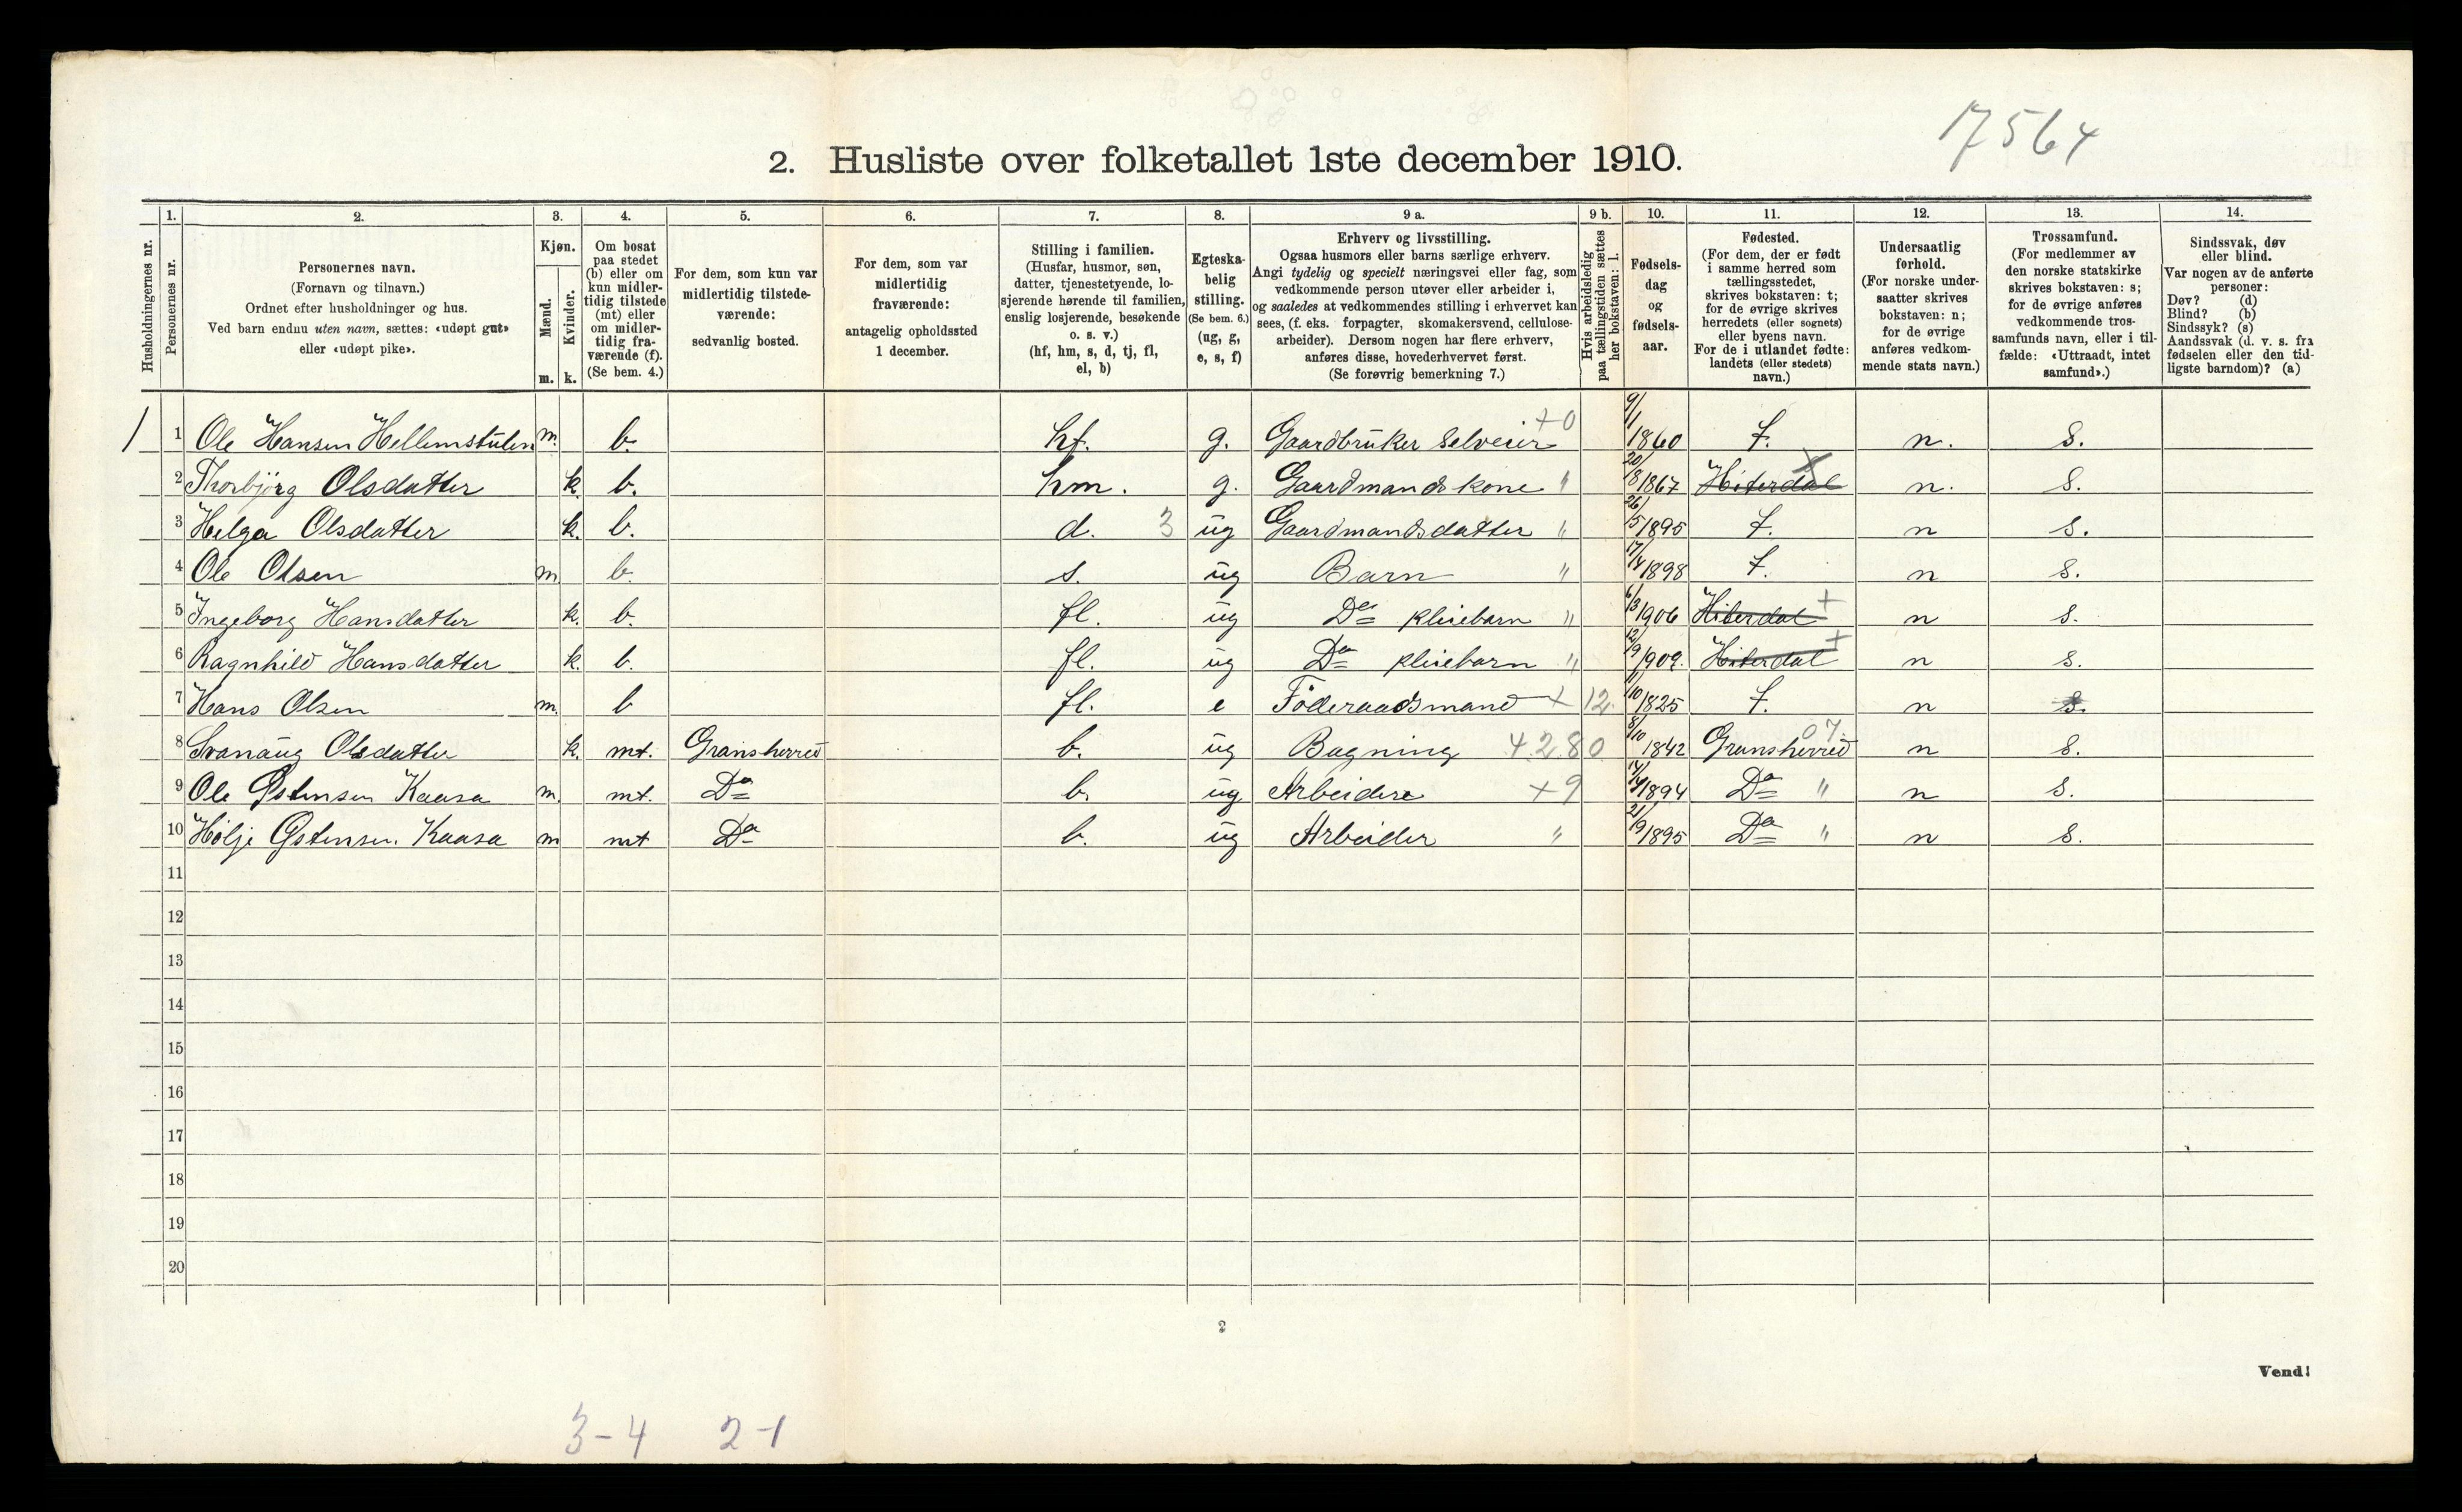 17564
2. Husliste over folketallet 1ste december 1910.
1. 2. 3. 4. 5. 6. 7. 8. 9 a. 9 b. 10. 11. 12. 13. 14.
Husholdningernes nr.
Personernes nr.
Personernes navn.
(Fornavn og tilnavn.)
Ordnet efter husholdninger og hus.
Ved barn endnu uten navn, sættes: «udøpt gut»
eller «udøpt pike».
Kjøn.
Mænd.
Kvinder.
m. k.
Om bosat
paa stedet
(b) eller om
kun midler-
tidig tilstede
(mt) eller
om midler-
tidig fra-
værende (f).
(Se bem. 4.)
For dem, som kun var
midlertidig tilstede-
værende:
sedvanlig bosted.
For dem, som var
midlertidig
fraværende:
antagelig opholdssted
1 december.
Stilling i familien.
(Husfar, husmor, søn,
datter, tjenestetyende, lo-
sjerende hørende til familien,
enslig losjerende, besøkende
o. s. v.)
(hf, hm, s, d, tj, fl,
el, b)
Egteska-
belig
stilling.
(Se bem. 6.)
(ug, g,
e, s, f)
Erhverv og livsstilling.
Ogsaa husmors eller barns særlige erhverv.
Angi tydelig og specielt næringsvei eller fag, som
vedkommende person utøver eller arbeider i,
og saaledes at vedkommendes stilling i erhvervet kan
sees, (f. eks. forpagter, skomakersvend, cellulose-
arbeider). Dersom nogen har flere erhverv,
anføres disse, hovederhvervet først.
(Se forøvrig bemerkning 7.)
Hvis arbeidsledig
paa tællingstiden sættes
her bokstaven: l.
Fødsels-
dag
og
fødsels-
aar.
Fødested.
(For dem, der er født
i samme herred som
tællingsstedet,
skrives bokstaven: t;
for de øvrige skrives
herredets (eller sognets)
eller byens navn.
For de i utlandet fødte:
landets (eller stedets)
navn.)
Undersaatlig
forhold.
(For norske under-
saatter skrives
bokstaven: n;
for de øvrige
anføres vedkom-
mende stats navn.)
Trossamfund.
(For medlemmer av
den norske statskirke
skrives bokstaven: s;
for de øvrige anføres
vedkommende tros-
samfunds navn, eller i til-
fælde: «Uttraadt, intet
samfund».)
Sindssvak, døv
eller blind.
Var nogen av de anførte
personer:
Døv? (d)
Blind? (b)
Sindssyk? (s)
Aandssvak (d. v. s. fra
fødselen eller den tid-
ligste barndom)? (a)
1 1 Ole Hansen Hellemstulen m. b. hf. g. Gaardbruker Selveier +0 9/1 1860 t. n. s.
2 Thorbjörg Olsdatter k. b. hm. g. Gaardmandskone " 20/8 1867 Hiterdal + n. s.
3 Helga Olsdatter k. b. d. 3 ug Gaardmandsdatter " 26/5 1895 t. n s.
4 Ole Olsen m b. s. ug Barn " 17/4 1898 t. n s.
5 Ingeborg Hansdatter k. b. fl. ug Do pleiebarn " 6/3 1906 Hiterdal + n s.
6 Ragnhild Hansdatter k. b. fl. ug Do pleiebarn " 12/9 1909. Hiterdal + n s.
7 Hans Olsen m. b fl. e Föderaadsmand + 12 11/10 1825 t. n s.
8 Svanaug Olsdatter k. mt. Gransherred b. ug Bagning 4280 8/10 1842 Gransherred 07 n s.
9 Ole Östensen Kaasa m. mt. Do b. ug Arbeider +9 14/4 1894 Do " n s.
10 Hölje Östensen Kaasa m mt Do b. ug Arbeider " 21/9 1895 Do " n s.
11
12
13
14
15
16
17
18
19
20
2
Vend!
3-4 2-1